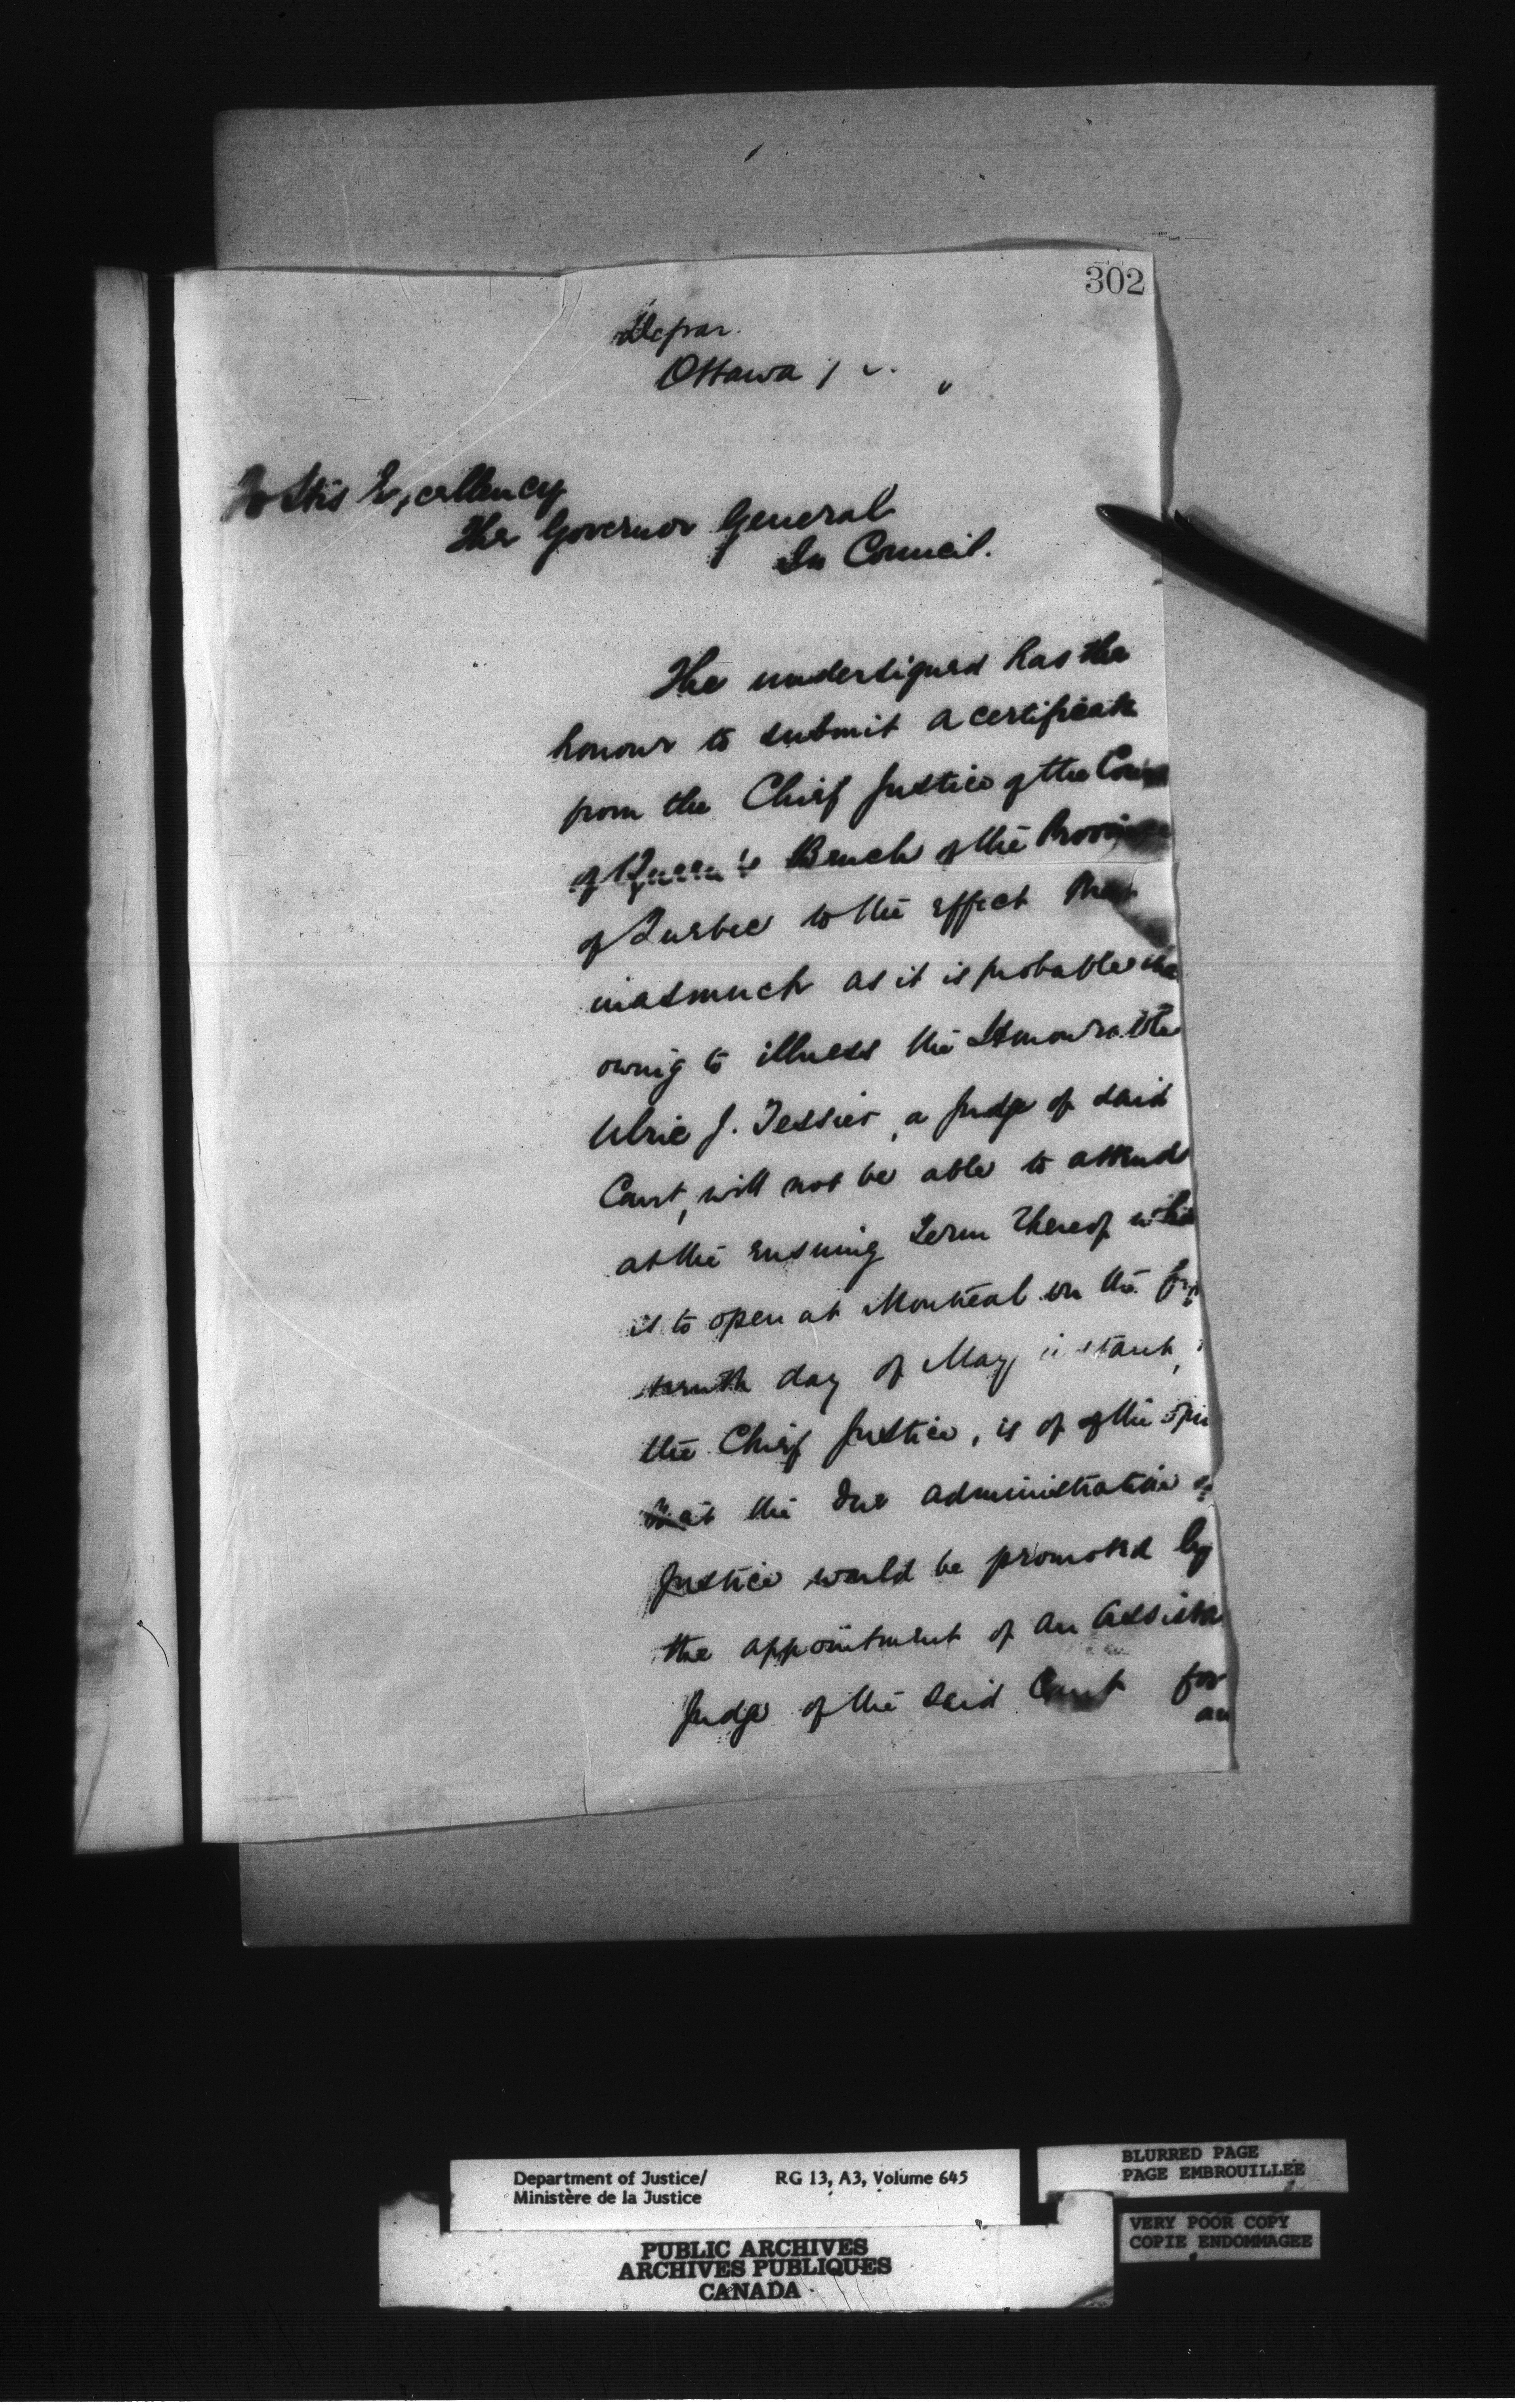 302
Depar.
Ottawa
To His Excellency
The Governor General
In Council.
The undersigned has the
honour to submit a certificate
from the Chief Justice of the Cour
of Queen's Bench of the Provin
of Quebec to the effect that
inasmuch as it is probable tha
owing to illness the Honourable
Ulric J. Tessier, a Judge of said
Court, will not be able to attend
at the ensuing Term thereof whi
is to open at Montreal on the
day of May instant,
the Chief Justice, is of of the opin
that the due administration o
Justice would be promoted by
the appointment of an Assista
Judge of the said Court for
an
Department of Justice/ RG 13, A3, Volume 645
Ministère de la Justice
PUBLIC ARCHIVES
ARCHIVES PUBLIQUES
CANADA
BLURRED PAGE
PAGE EMBROUILLEE
VERY POOR COPY
COPIE ENDOMMAGEE